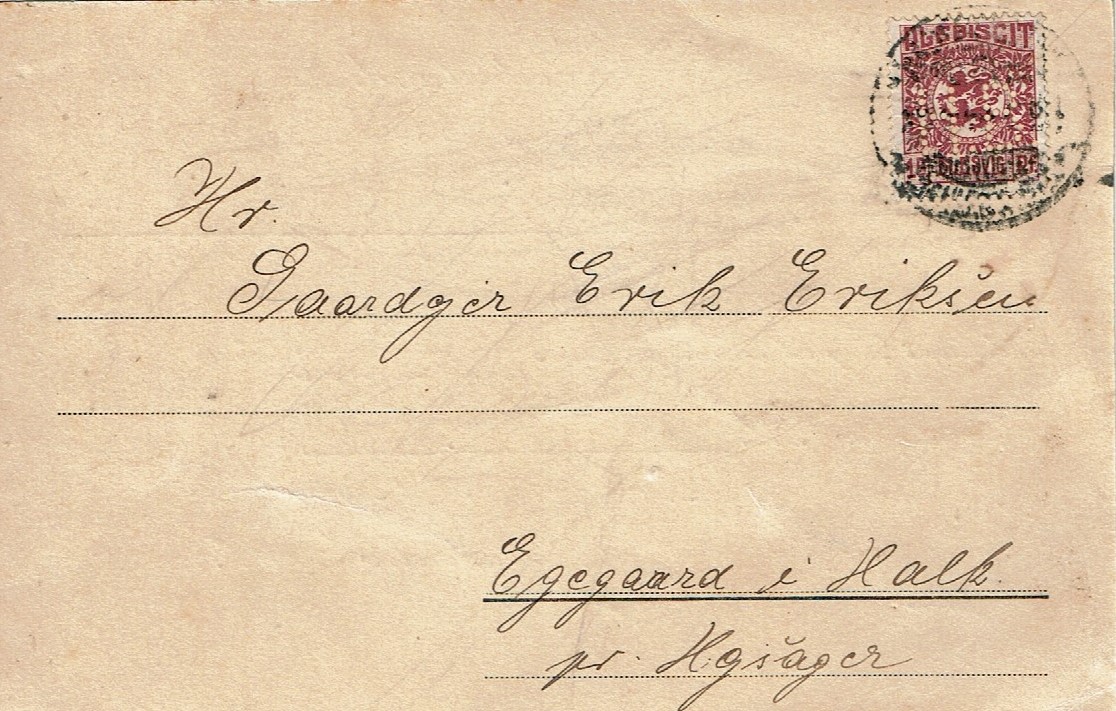 PLEBISCIT
Hr.
Gaardejer Erik Eriksen
Egegaard i Halk.
pr. Hgsager